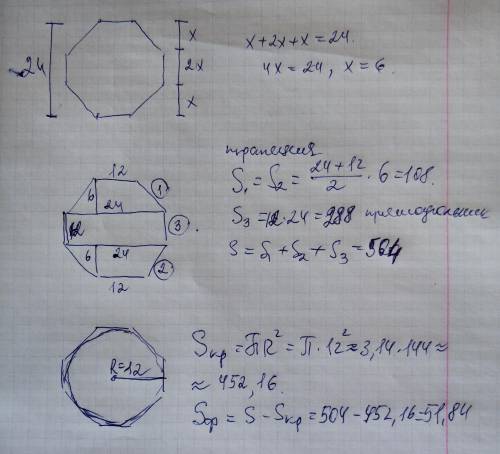 24
x
2x
x
x + 2x + x = 24.
4x = 24, x = 6.
трапеция
12
6
1
24
12
3
6
24
2
12
S₁ = S₂ = (24 + 12)/2 · 6 = 108.
S₃ = 12 · 24 = 288 прямоугольник
S = S₁ + S₂ + S₃ = 504
R=12
Sкр = ПR² = П · 12² ≈ 3,14 · 144 ≈
≈ 452,16.
Sбр = S − Sкр = 504 − 452,16 = 51,84